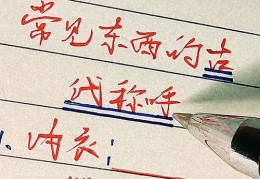 常见东西的古
代称呼
1、内衣：